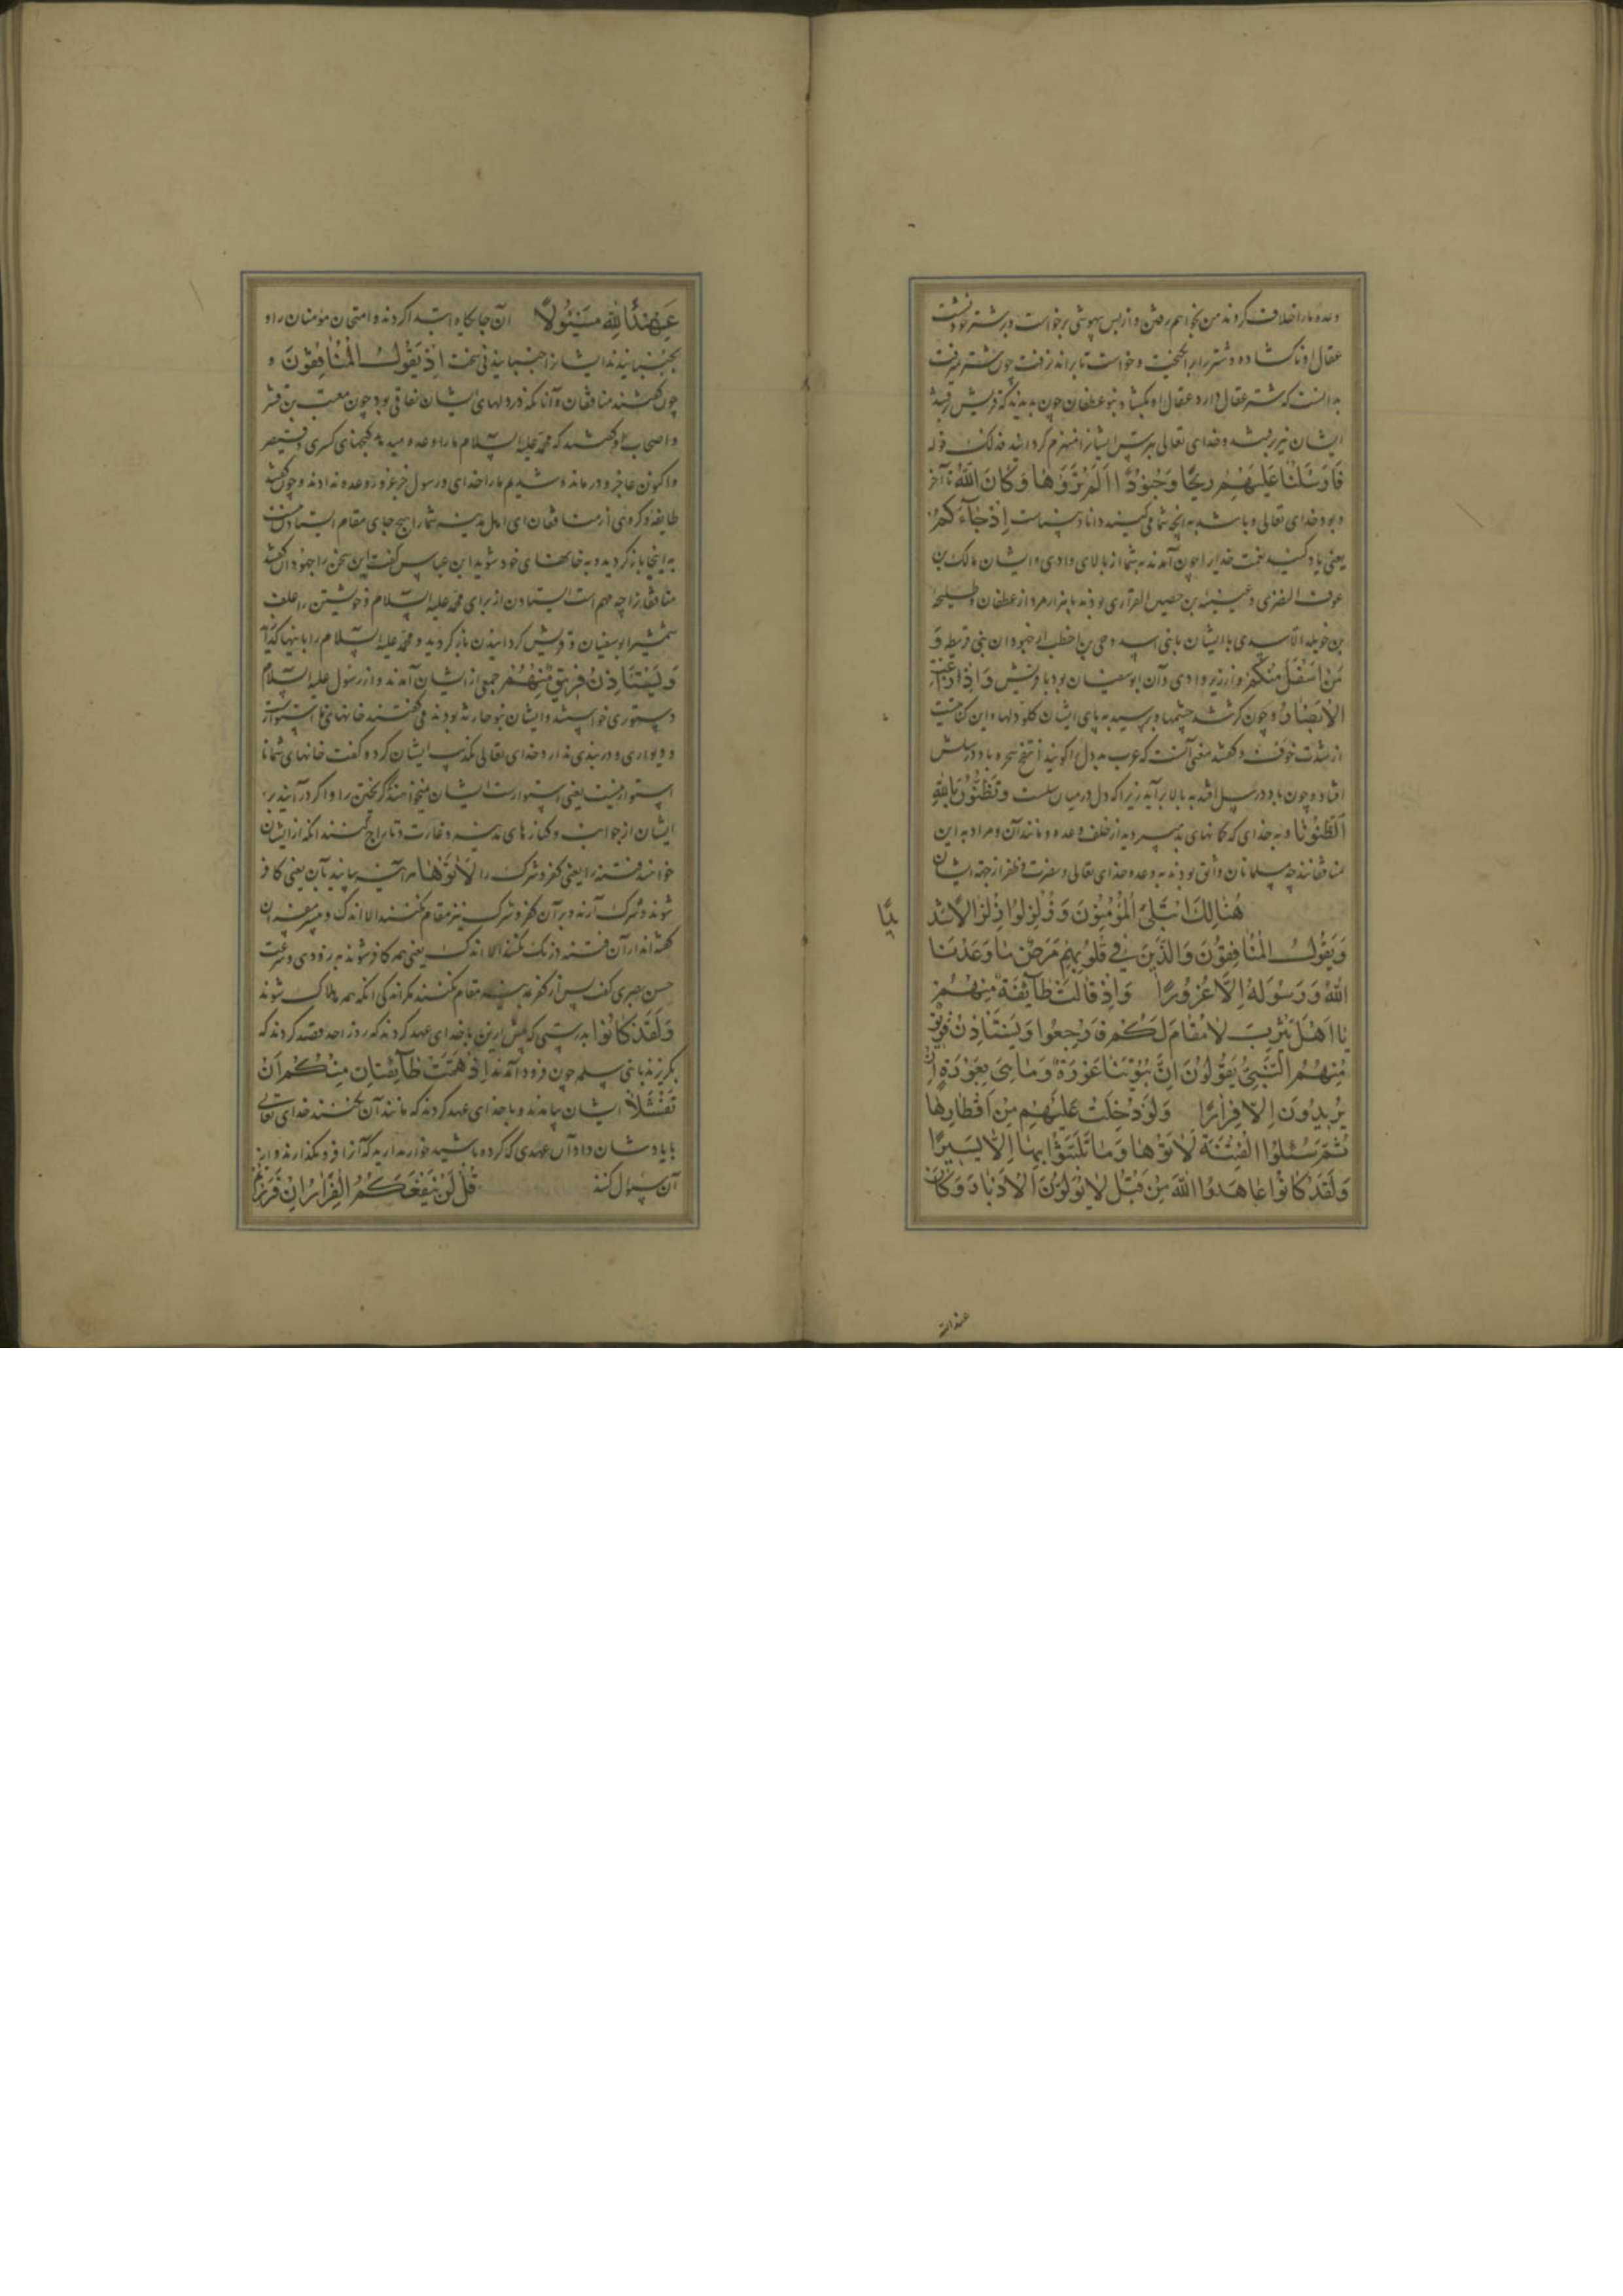 وعده ما را خلاف کردند من نخواهم رفتن و از بس بیهوشی برخواست و بر شتر خود نشست
عقال او ناگشاده و شتر را برانگیخت و خواست تا براند نرفت چون شتر نرفت
بدانست که شتر عقال دارد عقال او بگشاد بنو غطفان چون بدیدند که قریش رفتند
ایشان نیز برفتند و خدای تعالی بی‌ترس ایشان را منهزم گردانید فذلک قوله
فَاَرْسَلْنَا عَلَيْهِمْ رِيحًا وَجُنُودًا لَمْ تَرَوْهَا وَكَانَ اللّٰهُ تا آخر
و بود خدای تعالی و باشد به آنچه شما می‌کنید دانا و بیناست اِذْ جَآءُوكُمْ
یعنی یاد کنید نعمت خدای را چون آمدند به شما از بالای وادی و ایشان مالک بن
عوف النضری و عیینه بن حصین الفزاری بودند با هزار مرد از غطفان و طلیحه
بن خویلد الاسدی با ایشان با بنی اسد و حی بن اخطب از جهودان بنی قریظه وَ
مِنْ اَسْفَلَ مِنْكُمْ و از زیر وادی و آن ابو سفیان بود با قریش وَاِذْ زَاغَتِ
الْاَبْصَارُ و چون گشته شد چشمها و برسید به پای ایشان گلو دلها و این کنایتیست
از شدت خوف و گفتند معنی آنست که عرب بددل را گویند انتفخ سحره باد در سلش
افتاد و چون باد در سل افتد به بالا برآید زیرا که دل در میان سلست وَتَظُنُّونَ بِاللّٰهِ
الظُّنُونَا و به خدای که گمانهای بد می‌برید از خلف وعده و مانند آن و مراد به این
منافقانند چه مسلمانان واثق بودند به وعده خدای تعالی و نصرت و ظفر از جهت ایشان
هُنَالِكَ ابْتُلِيَ الْمُؤْمِنُونَ وَزُلْزِلُوا زِلْزَالًا شَدِ
يدًا
وَيَقُولُ الْمُنَافِقُونَ وَالَّذِينَ فِي قُلُوبِهِمْ مَرَضٌ مَا وَعَدَنَا
اللّٰهُ وَرَسُولُهُ اِلَّا غُرُورًا وَاِذْ قَالَتْ طَآئِفَةٌ مِنْهُمْ
يَا اَهْلَ يَثْرِبَ لَا مُقَامَ لَكُمْ فَارْجِعُوا وَيَسْتَاْذِنُ فَرِيقٌ
مِنْهُمُ النَّبِيَّ يَقُولُونَ اِنَّ بُيُوتَنَا عَوْرَةٌ وَمَا هِيَ بِعَوْرَةٍ اِنْ
يُرِيدُونَ اِلَّا فِرَارًا وَلَوْ دُخِلَتْ عَلَيْهِمْ مِنْ اَقْطَارِهَا
ثُمَّ سُئِلُوا الْفِتْنَةَ لَاٰتَوْهَا وَمَا تَلَبَّثُوا بِهَا اِلَّا يَسِيرًا
وَلَقَدْ كَانُوا عَاهَدُوا اللّٰهَ مِنْ قَبْلُ لَا يُوَلُّونَ الْاَدْبَارَ وَكَانَ
عهد الله
عَهْدُ اللّٰهِ مَسْئُولًا آن جایگاه ابتدا کردند و امتحان مؤمنان را و
بجنبانیدند ایشان را جنبانیدنی سخت اِذْ يَقُولُ الْمُنَافِقُونَ و
چون گفتند منافقان و آنانکه در دلهای ایشان نفاقی بود چون معتب بن قشیر
و اصحاب او گفتند که محمد علیه السلام ما را وعده میدهد گنجهای کسری و قیصر
و اکنون عاجز و درمانده شدیم ما را خدای و رسول جز غرور وعده ندادند و چون گفتند
طایفه و گروهی از منافقان ای اهل مدینه شما را هیچ جای مقام ایستادن نیست
به اینجا بازگردید و به خانهای خود شوید ابن عباس گفت این سخن را جهودان گفتند
منافقان را چه مهم است ایستادن از برای محمد علیه السلام و خویشتن را علف
شمشیر ابو سفیان و قریش گردانیدن بازگردید و محمد علیه السلام را با اینها گذارید
وَيَسْتَاْذِنُ فَرِيقٌ مِنْهُمْ جمعی از ایشان آمدند و از رسول علیه السلام
دستوری خواستند و ایشان بنو حارثه بودند می گفتند خانهای ما استوار
و دیواری و دربندی ندارد خدای تعالی تکذیب ایشان کرد و گفت خانهای شما نا
استوار نیست یعنی استوارست ایشان میخواهند گریختن را و اگر درآیند بر
ایشان از جوانب و کنارهای مدینه و غارت و تاراج کنند آنگه از ایشان
خواهند فتنه را یعنی کفر و شرک را لَاٰتَوْهَا هر آینه بیایند بآن یعنی کافر
شوند و شرک آرند و بر آن کفر و شرک نیز مقام نکنند الا اندک و مفسران
گفته‌اند از آن فتنه درنگ نکنند الا اندک یعنی همه کافر شوند به زودی و سرعت
حسن بصری گفت پس از کفر به مدینه مقام نکنند مگر اندکی آنگه همه هلاک شوند
وَلَقَدْ كَانُوا بدرستی که پیش ازین با خدای عهد کردند که روز احد قصد کردند که
بگریزند با بنی سلمه چون فرود آمدند اِذْ هَمَّتْ طَآئِفَتَانِ مِنْكُمْ اَنْ
تَفْشَلَا ایشان بیامدند و با خدای عهد کردند که مانند آن نکنند خدای تعالی
با یادشان داد آن عهدی که کرده باشید خوار مدارید که آن را فرو نگذارند و از
آن سؤال کنند قُلْ لَنْ يَنْفَعَكُمُ الْفِرَارُ اِنْ فَرَرْتُمْ